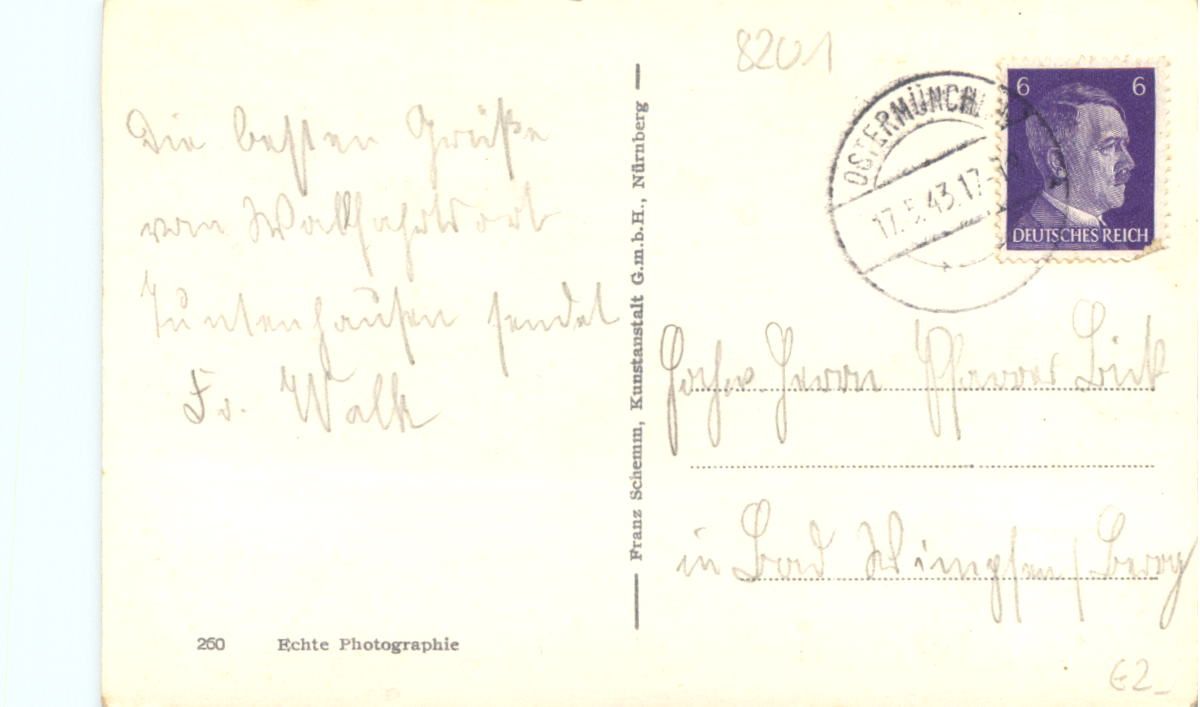 8201
6 6
OSTERMÜNCHEN
17.5.43.17-18
DEUTSCHES REICH
Die besten Grüße
vom Wallfahrtsort
Tuntenhausen sendet
Fr. Walk
Franz Schemm, Kunstanstalt G.m.b.H., Nürnberg
Hochw. Herrn Pfarrer
in Bad Wimpfen / Berg
260 Echte Photographie
€2-